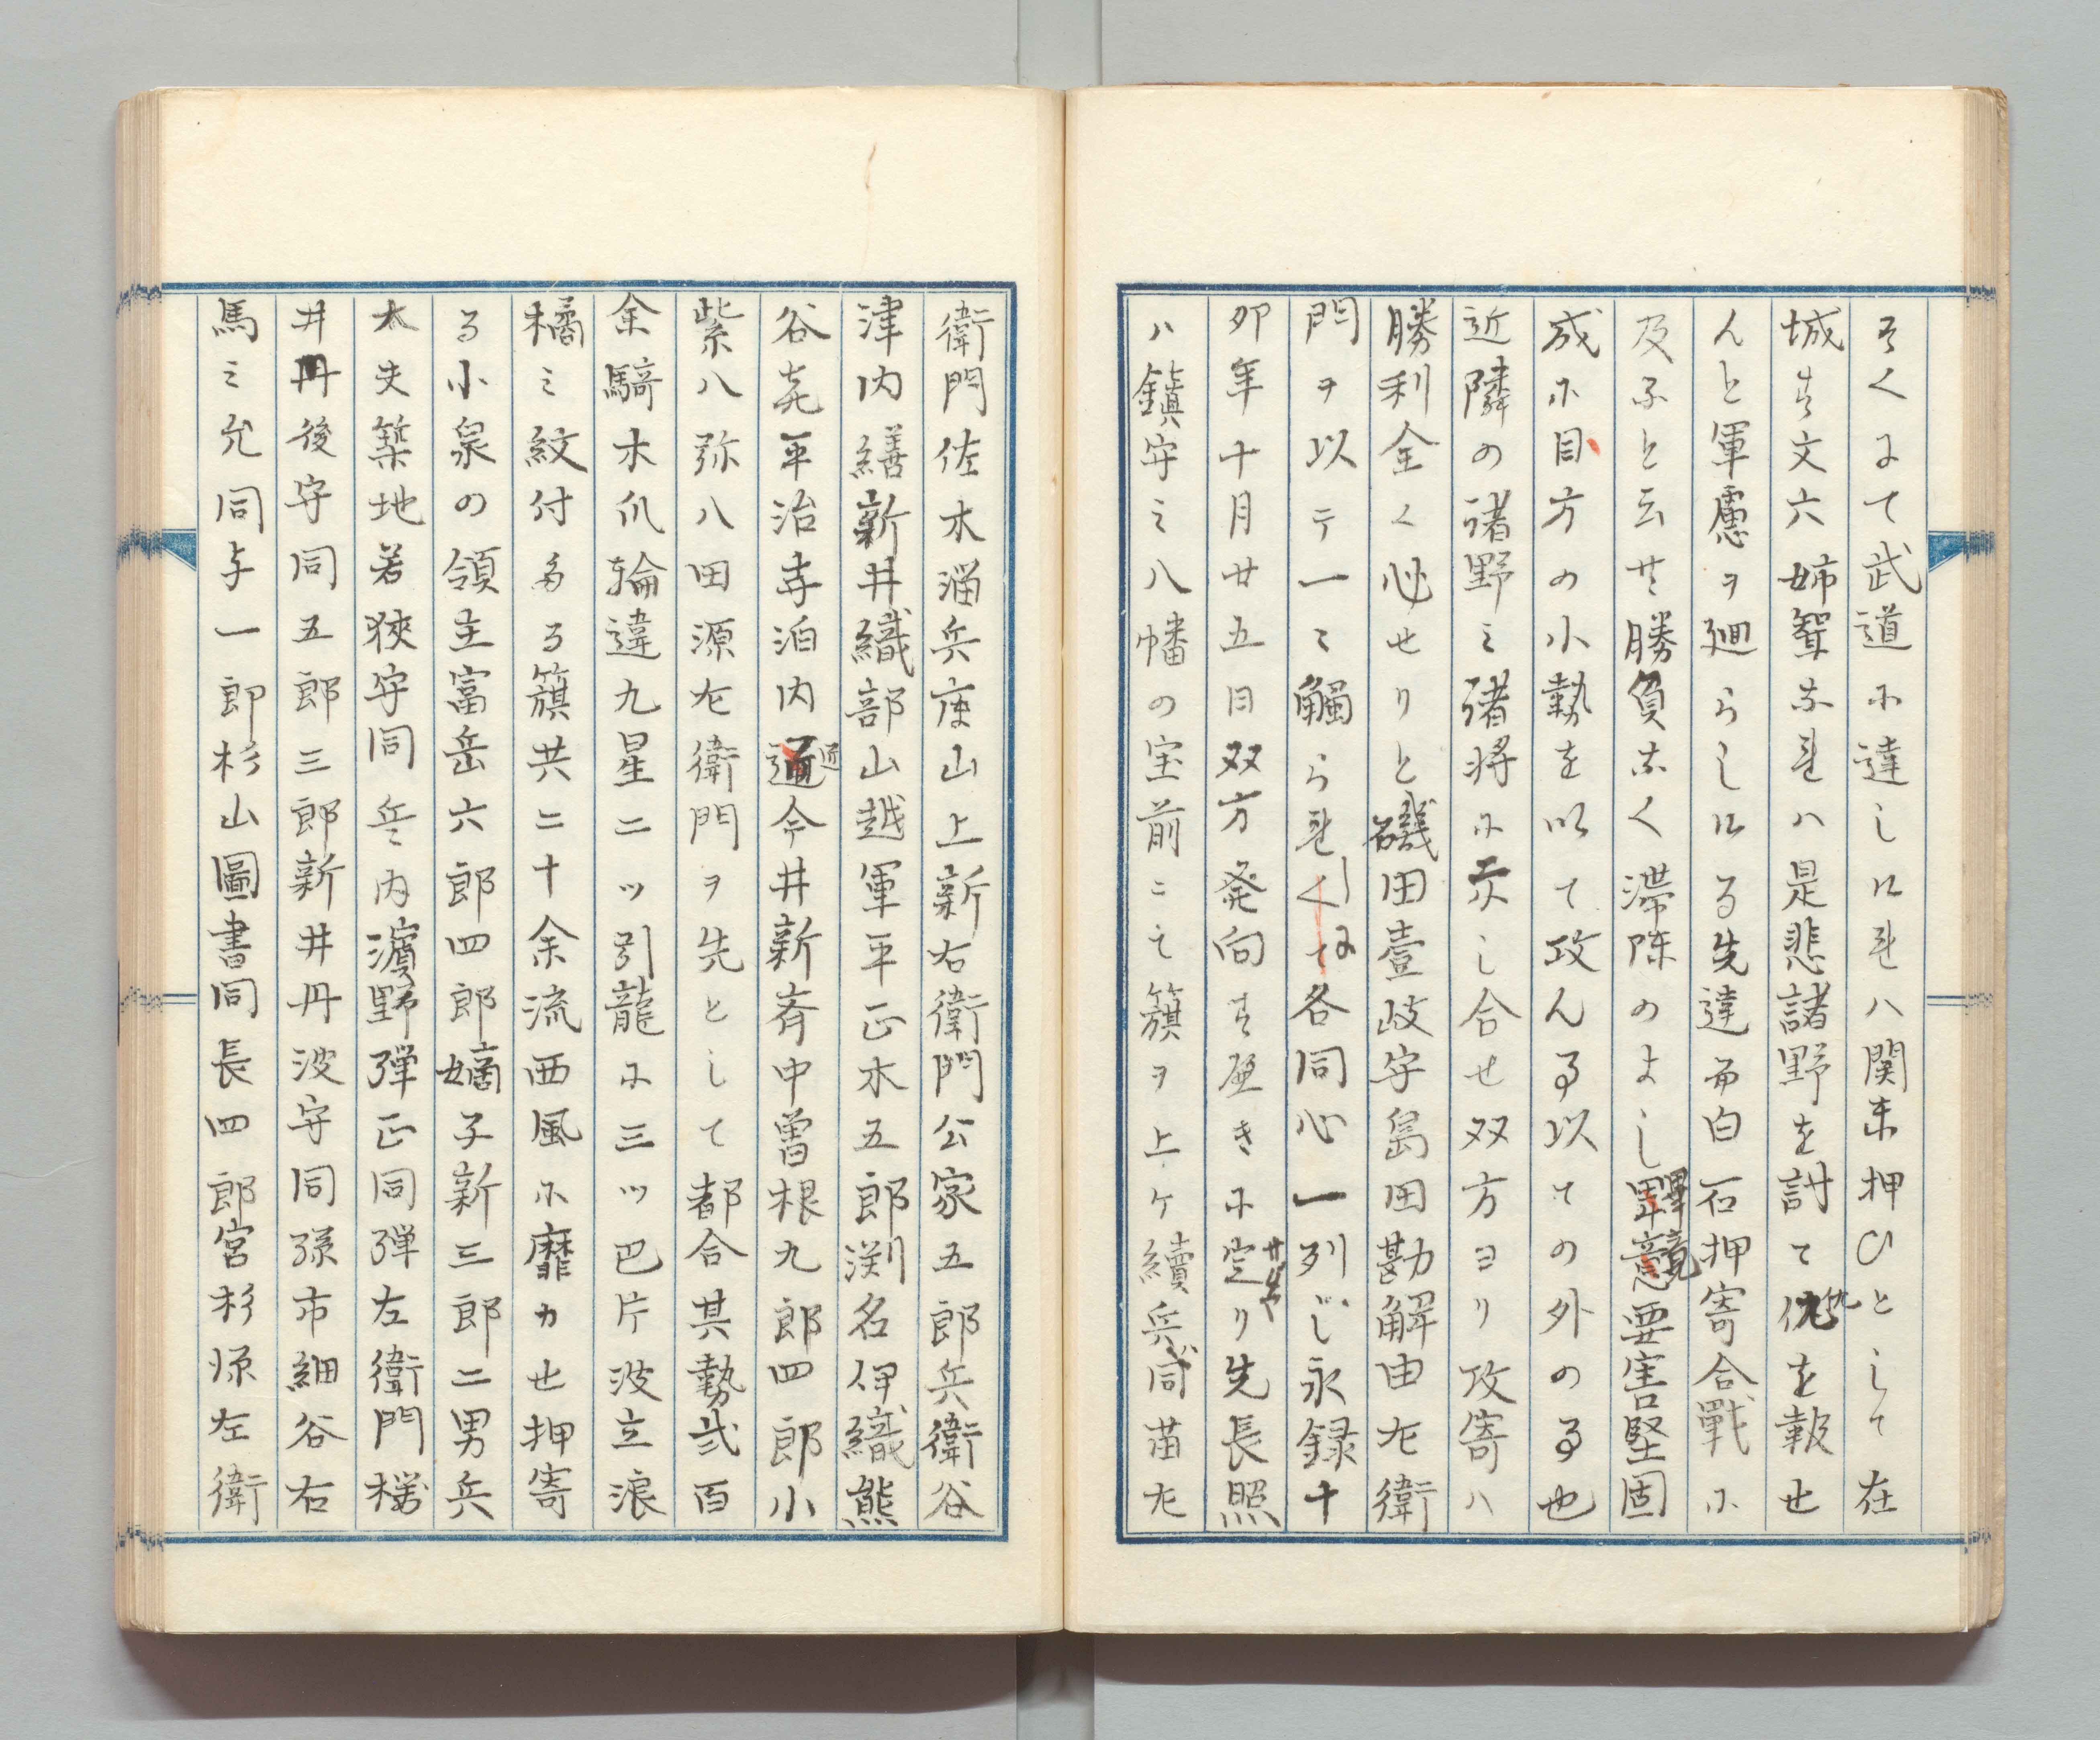 そくよて武道小達しけれハ関東押ひとして在
城す文六姉聟なれハ是悲諸野を討て仇を報せ
んと軍慮ヲ廻らしける先達而白石押寄合戰小
及ふと云共勝負なく滞陣のよし要害堅固
成小目方の小勢を以て攻んる事以ての外の事也
近隣の諸野之諸将小示し合せ双方ヨリ攻寄ハ
勝利全く必せりと磯田壹岐守島田勘解由左衛
門ヲ以テ一々觸られ各同心一列じ永録十
卯年十月廿五日双方発向す極き小定り先長照
ハ鎮守之八幡の宝前ニて籏ヲ上ケ續兵同苗左
衛門佐木溜兵庫山上新右衛門公家五郎兵衛谷
津内繕新井織部山越軍平正木五郎渕名伊織熊
谷尭平治寺泊内近今井新斉中曽根九郎四郎小
紫八弥八田源左衛門ヲ先として都合其勢弐百
余騎木爪輪違九星二ッ引龍小三ッ巴片波立浪
橘之紋付たる籏共二十余流西風小靡カせ押寄
る小泉の領主富岳六郎四郎嫡子新三郎二男兵
太夫築地若狹守同兵内濱野弾正同弾左衛門
井丹後守同五郎三郎新井丹波守同孫市細谷右
馬之允同与一郎杉山圖書同長四郎宮杉源左衛